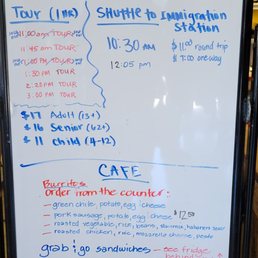 TOUR (1 HR)
11:00 am TOUR
11:45 am TOUR
1:00 PM TOUR
1:30 PM TOUR
2:20 PM TOUR
3:00 PM TOUR
$17 Adult (13+)
$16 Senior (62+)
$11 Child (4-12)
SHUTTLE to IMMIGRATION
STATION
10:30 AM
12:05 pm
$11.00 round trip
$7.00 one way
CAFE
Burritos
order from the counter:
- green chile, potato, egg, cheese
- pork sausage, potato, egg, cheese $12.50
- roasted vegetables, rice, beans, habanero salsa
- roasted chicken, rice, mozzarella cheese, pesto
grab & go sandwiches - see fridge
behind